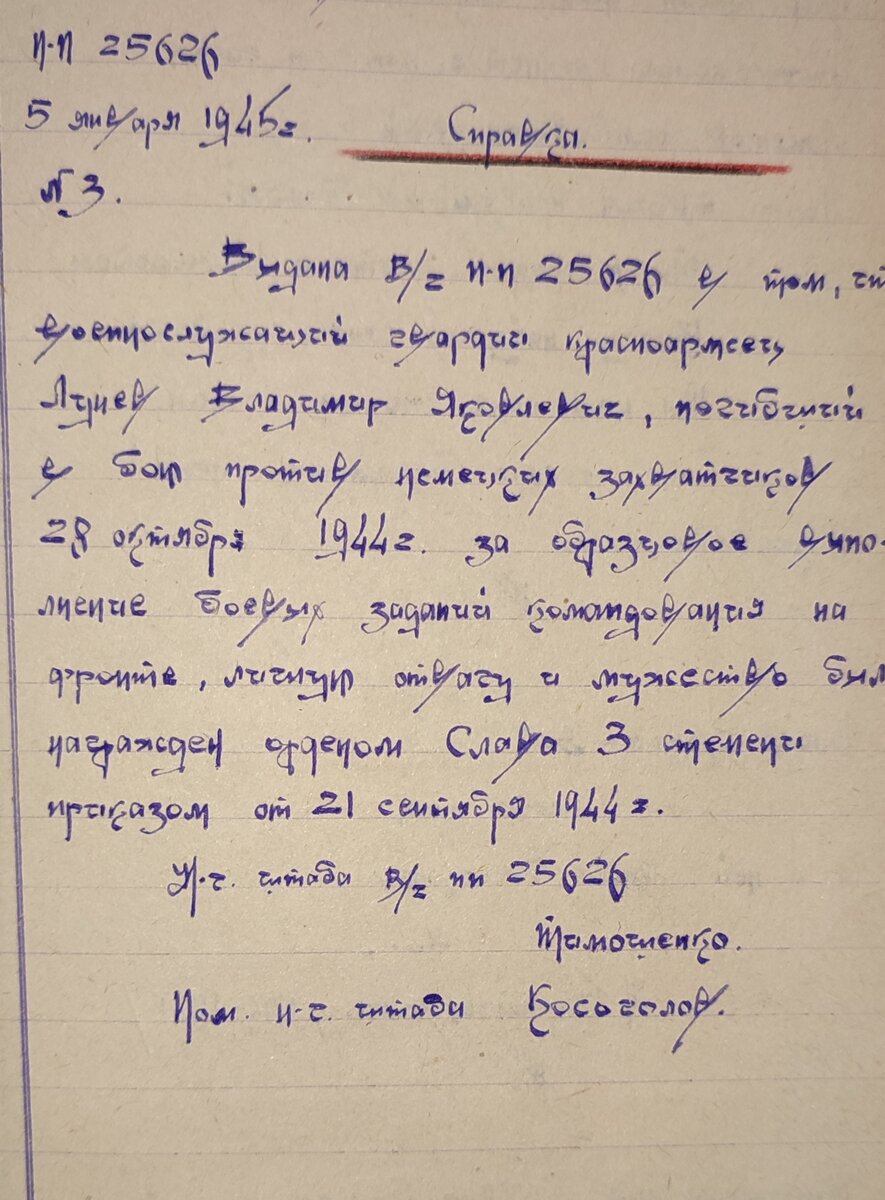 п-п 25626
5 января 1945 г.
Справка.
№ 3.
Выдана В/ч п-п 25626 в том, чт
военнослужащий гвардии красноармеец
Лунев Владимир Яковлевич, погибший
в бою против немецких захватчиков
28 октября 1944 г. за образцовое выпо-
лнение боевых заданий командования на
фронте, личную отвагу и мужество был
награжден орденом Слава 3 степени
приказом от 21 сентября 1944 г.
Н-ч. штаба В/ч пп 25626
Тимошенко.
Пом. н-ч. штаба Косоголов.